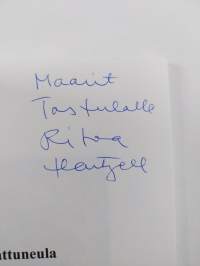 Maarit
Tastulalle
Ritva
Hartzell
ttuneula